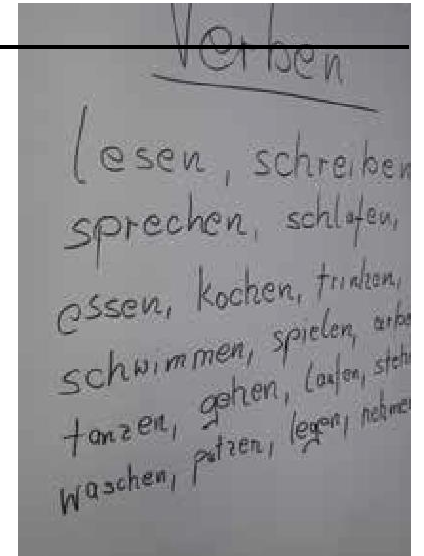 Verben
lesen, schreiben
sprechen, schlafen,
essen, kochen, trinken,
schwimmen, spielen, arbe
tanzen, gehen, laufen, steh
waschen, putzen, legen, nehme